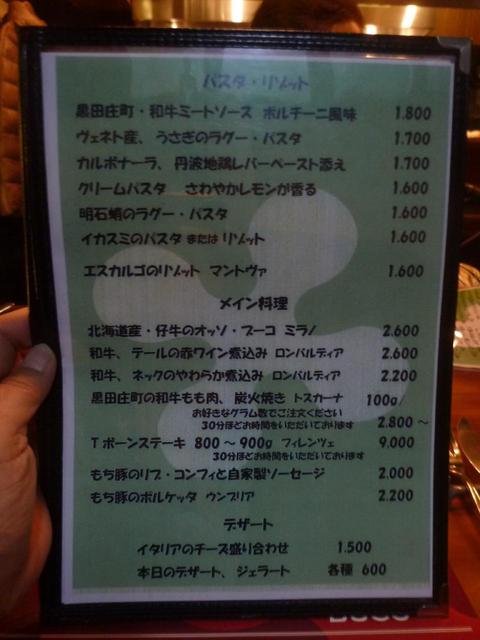 パスタ・リゾット
黒田庄町・和牛ミートソース ポルチーニ風味 1.800
ヴェネト産、うさぎのラグー・パスタ 1.700
カルボナーラ、丹波地鶏レバーペースト添え 1.700
クリームパスタ さわやかレモンが香る 1.600
明石蛸のラグー・パスタ 1.600
イカスミのパスタ または リゾット 1.600
エスカルゴのリゾット マントヴァ 1.600
メイン料理
北海道産・仔牛のオッソ・ブーコ ミラノ 2.600
和牛、テールの赤ワイン煮込み ロンバルディア 2.600
和牛、ネックのやわらか煮込み ロンバルディア 2.200
黒田庄町の和牛もも肉、炭火焼き トスカーナ 100g/
お好きなグラム数でご注文ください
30分ほどお時間をいただいております 2.800～
Tボーンステーキ 800～900g フィレンツェ 9.000
30分ほどお時間をいただいております
もち豚のリブ・コンフィと自家製ソーセージ 2.000
もち豚のポルケッタ ウンブリア 2.200
デザート
イタリアのチーズ盛り合わせ 1.500
本日のデザート、ジェラート 各種 600